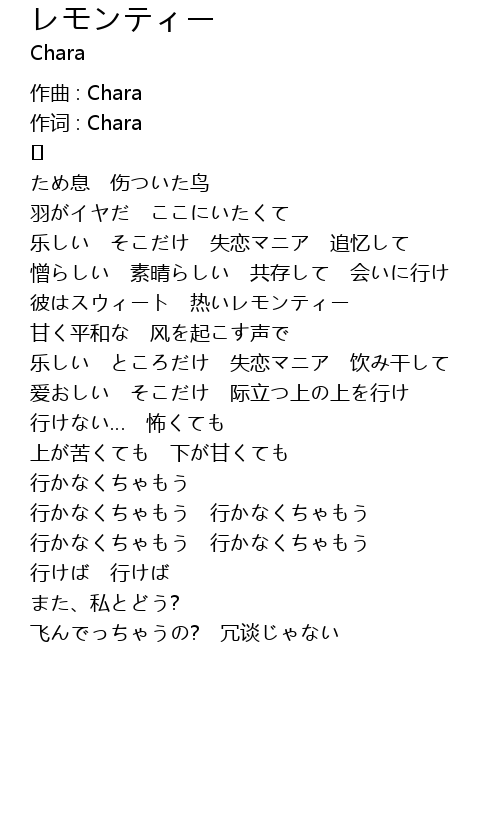 レモンティー
Chara
作曲 : Chara
作词 : Chara
[]
ため息　伤ついた鸟
羽がイヤだ　ここにいたくて
乐しい　そこだけ　失恋マニア　追忆して
憎らしい　素晴らしい　共存して　会いに行け
彼はスウィート　热いレモンティー
甘く平和な　风を起こす声で
乐しい　ところだけ　失恋マニア　饮み干して
爱おしい　そこだけ　际立つ上の上を行け
行けない...　怖くても
上が苦くても　下が甘くても
行かなくちゃもう
行かなくちゃもう　行かなくちゃもう
行かなくちゃもう　行かなくちゃもう
行けば　行けば
また、私とどう?
飞んでっちゃうの?　冗谈じゃない